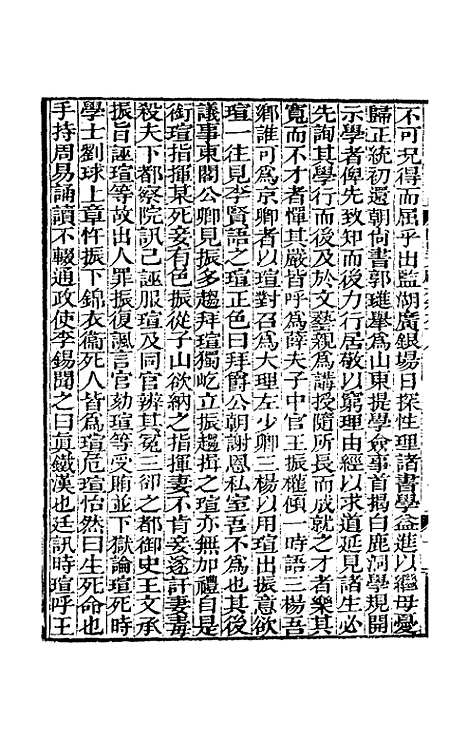 不可况得而屈乎出監湖廣銀場日探性理諸書學益進以繼母憂
歸正統初還朝尚書郭璡舉爲山東提學僉事首揭白鹿洞學規開
示學者俾先致知而後力行居敬以窮理由經以求道延見諸生必
先詢其學行而後及於文藝親爲講授隨所長而成就之才者樂其
寬而不才者憚其嚴皆呼爲薛夫子中官王振權傾一時語三楊吾
鄉誰可爲京卿者以瑄對召爲大理左少卿三楊以用瑄出振意欲
瑄一往見李賢語之瑄正色曰拜爵公朝謝恩私室吾不爲也其後
議事東閣公卿見振多趨拜瑄獨屹立振趨揖之瑄亦無加禮自是
銜瑄指揮某死妾有色振從子山欲納之指揮妻不肯妾遂訐妻毒
殺夫下都察院訊己誣服瑄及同官辨其冤三卻之都御史王文承
振旨誣瑄等故出人罪振復諷言官劾瑄等受賄並下獄論瑄死時
學士劉球上章忤振下錦衣衞死人皆爲瑄危瑄怡然曰生死命也
手持周易誦讀不輟通政使李錫聞之曰眞鐵漢也廷訊時瑄呼王